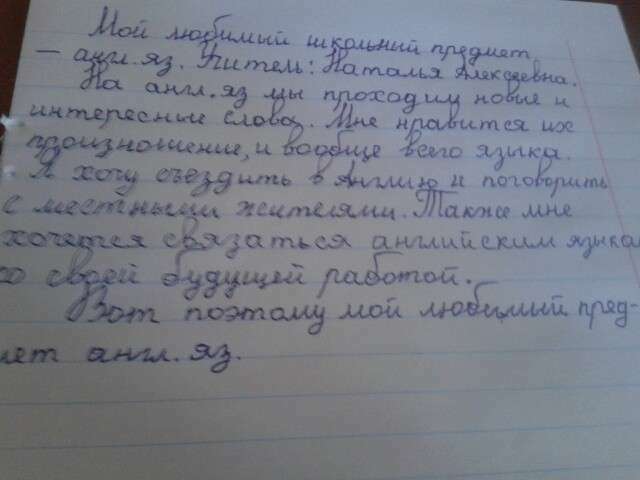 Мой любимый школьный предмет
– англ.яз. Учитель: Наталья Алексеевна.
На англ.яз мы проходим новые и
интересные слова. Мне нравится их
произношение, и вообще всего языка.
Я хочу съездить в Англию и поговорить
с местными жителями. Также мне
хочется связаться английским языком
со своей будущей работой.
Вот поэтому мой любимый пред-
мет англ.яз.